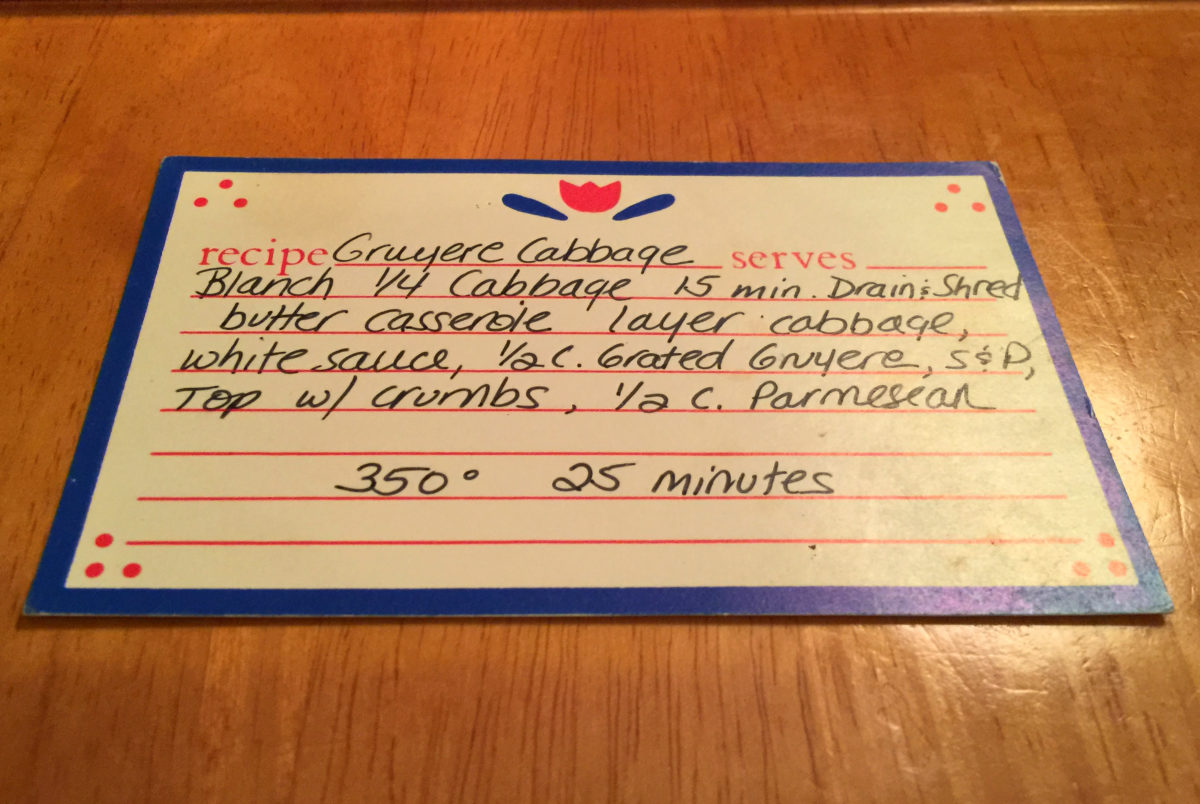 recipe Gruyere Cabbage serves
Blanch 1/4 Cabbage 15 min. Drain & Shred
butter casserole layer cabbage,
white sauce, 1/2 c. Grated Gruyere, S & P,
Top w/ crumbs, 1/2 C. Parmesean
350° 25 minutes